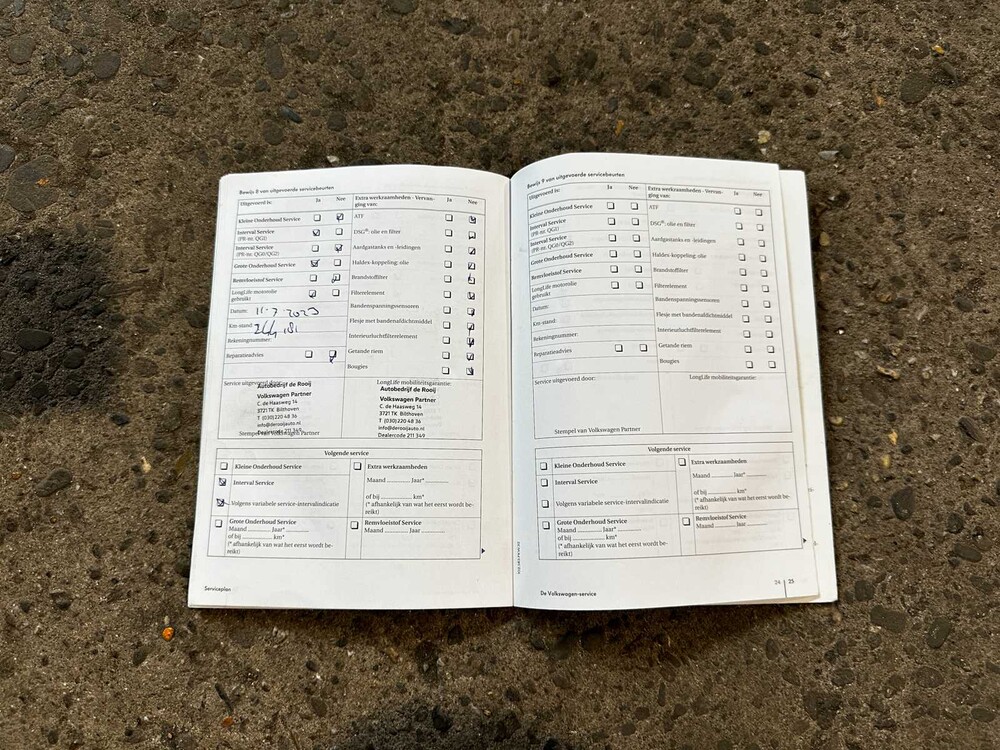 Bewijs 8 van uitgevoerde servicebeurten
Uitgevoerd is: Ja Nee
Kleine Onderhoud Service
Interval Service
(PR-nr. QG1)
Interval Service
(PR-nr. QG0/QG2)
Grote Onderhoud Service
Remvloeistof Service
LongLife motorolie
gebruikt
Datum: 11-7-2023
Km-stand:
Rekeningnummer:
Reparatieadvies
Extra werkzaamheden - Vervan-
ging van: Ja Nee
ATF
DSG®: olie en filter
Aardgastanks en -leidingen
Haldex-koppeling: olie
Brandstoffilter
Filterelement
Bandenspanningssensoren
Flesje met bandenafdichtmiddel
Interieurluchtfilterelement
Getande riem
Bougies
Service uitgevoerd door:
Autobedrijf de Rooij
Volkswagen Partner
C. de Haasweg 14
3721 TK Bilthoven
T (030) 220 48 36
info@derooijauto.nl
Dealercode 211 349
Stempel van Volkswagen Partner
LongLife mobiliteitsgarantie:
Autobedrijf de Rooij
Volkswagen Partner
C. de Haasweg 14
3721 TK Bilthoven
T (030) 220 48 36
info@derooijauto.nl
Dealercode 211 349
Volgende service
Kleine Onderhoud Service
Interval Service
Volgens variabele service-intervalindicatie
Extra werkzaamheden
Maand ............ Jaar*............
of bij ............ km*
(* afhankelijk van wat het eerst wordt be-
reikt)
Grote Onderhoud Service
Maand ............ Jaar*............
of bij ............ km*
(* afhankelijk van wat het eerst wordt be-
reikt)
Remvloeistof Service
Maand ............ Jaar ............
Serviceplan
Bewijs 9 van uitgevoerde servicebeurten
Uitgevoerd is: Ja Nee
Kleine Onderhoud Service
Interval Service
(PR-nr. QG1)
Interval Service
(PR-nr. QG0/QG2)
Grote Onderhoud Service
Remvloeistof Service
LongLife motorolie
gebruikt
Datum:
Km-stand:
Rekeningnummer:
Reparatieadvies
Extra werkzaamheden - Vervan-
ging van: Ja Nee
ATF
DSG®: olie en filter
Aardgastanks en -leidingen
Haldex-koppeling: olie
Brandstoffilter
Filterelement
Bandenspanningssensoren
Flesje met bandenafdichtmiddel
Interieurluchtfilterelement
Getande riem
Bougies
Service uitgevoerd door:
Stempel van Volkswagen Partner
LongLife mobiliteitsgarantie:
Volgende service
Kleine Onderhoud Service
Interval Service
Volgens variabele service-intervalindicatie
Extra werkzaamheden
Maand ............ Jaar*............
of bij ............ km*
(* afhankelijk van wat het eerst wordt be-
reikt)
Grote Onderhoud Service
Maand ............ Jaar*............
of bij ............ km*
(* afhankelijk van wat het eerst wordt be-
reikt)
Remvloeistof Service
Maand ............ Jaar ............
De Volkswagen-service
24 25